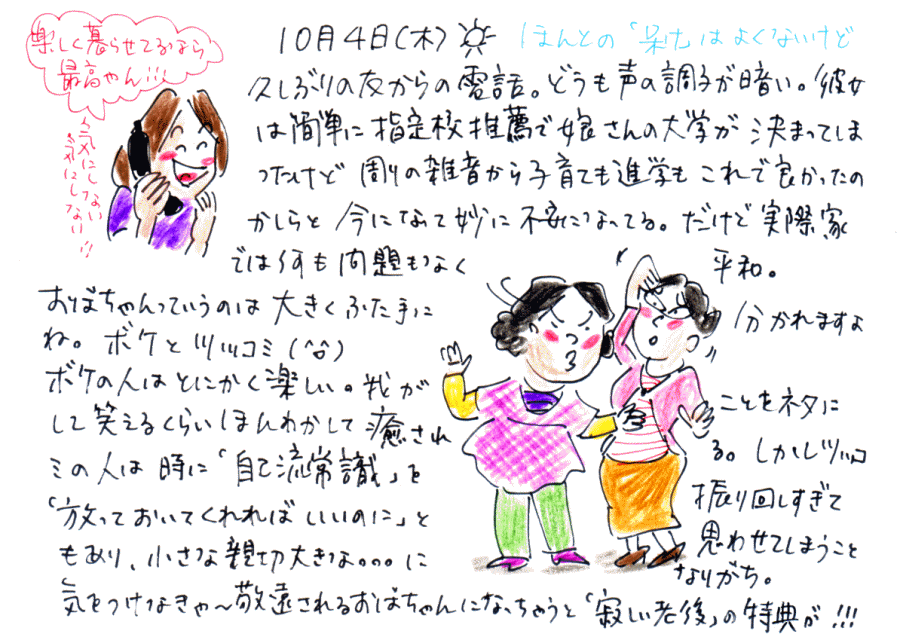 楽しく暮らせてるなら
最高やん!!!
気にしない
気にしない!!
10月4日(木)
ほんとの「呆け」はよくないけど
久しぶりの友からの電話。どうも声の調子が暗い。彼女
は簡単に指定校推薦で娘さんの大学が決まってしま
ったけど周りの雑音から子育ても進学もこれで良かったの
かしらと今になって妙に不安になってる。だけど実際家
では何も問題もなく 平和。
おばちゃんっていうのは大きくふた手に 分かれますよ
ね。ボケとツッコミ(^o^)
ボケの人はとにかく楽しい。我が ことをネタに
して笑えるくらいほんわかして癒され る。しかしツッコ
ミの人は時に「自己流常識」を 振り回しすぎて
「放っておいてくれればいいのに」と 思わせてしまうこと
もあり、小さな親切大きな。。。に なりがち。
気をつけなきゃ〜敬遠されるおばちゃんになっちゃうと「寂しい老後」の特典が!!!